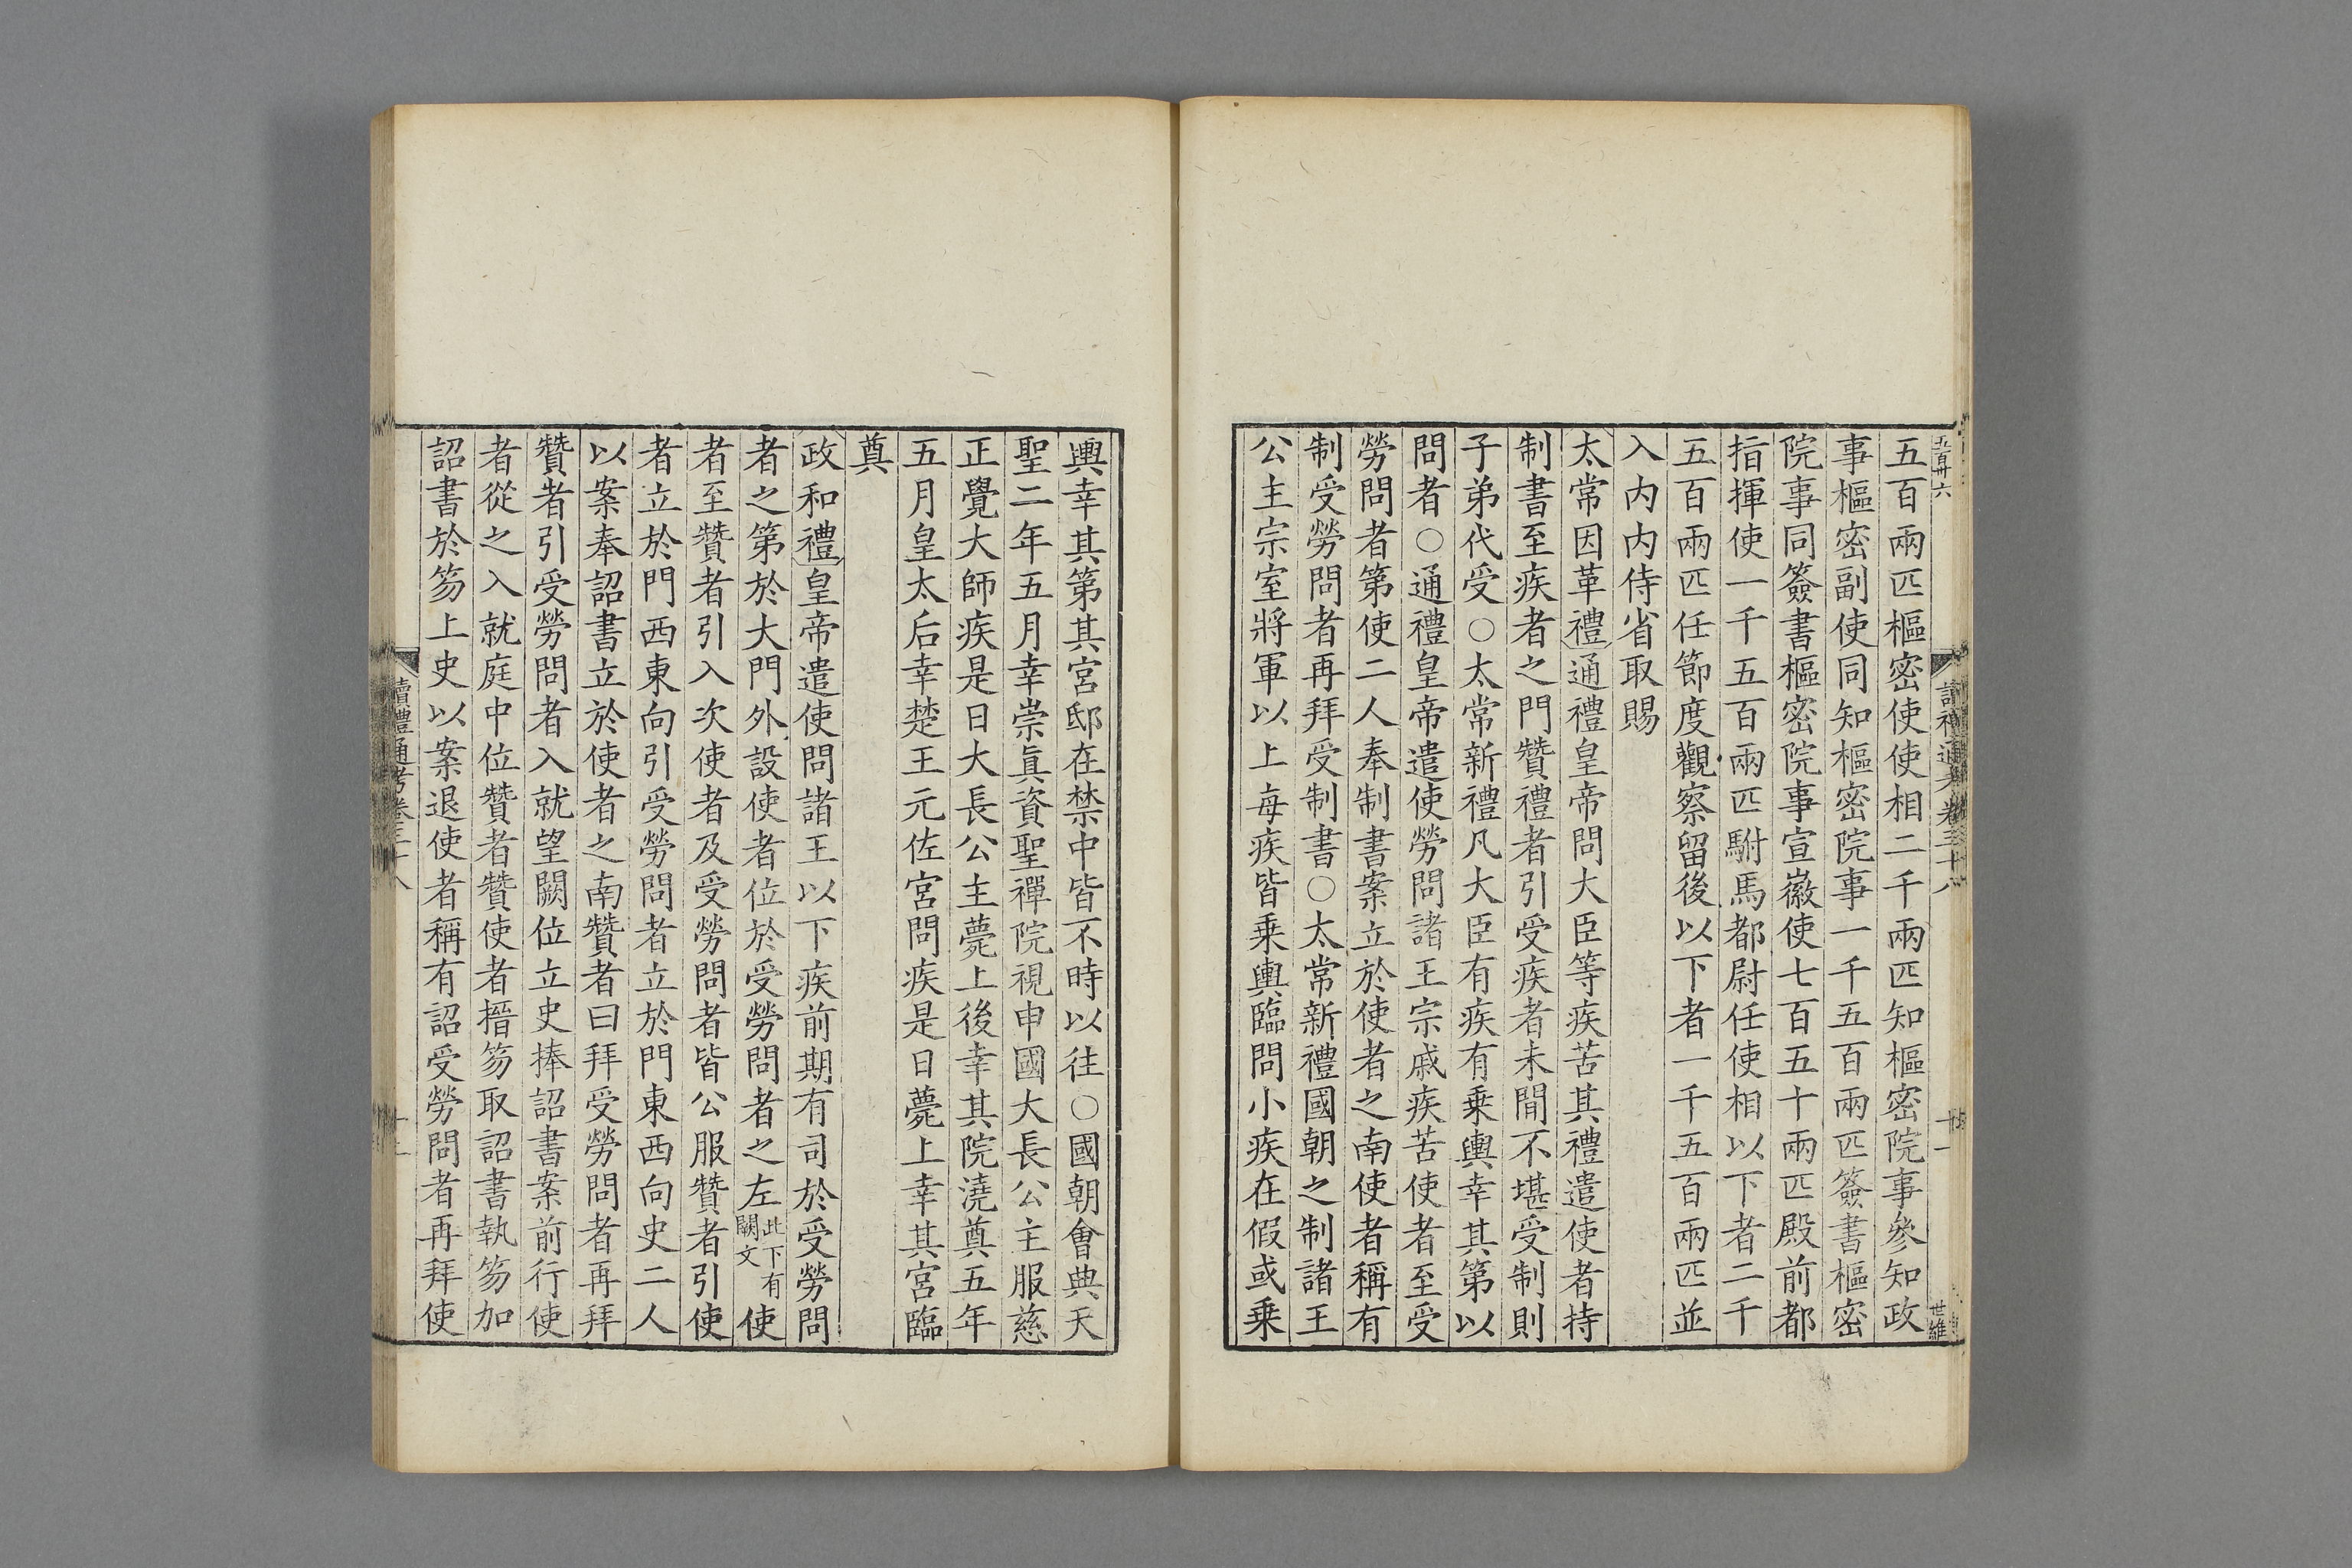 五百卅六
讀禮通考卷三十八
十一
世維
五百兩匹樞密使使相二千兩匹知樞密院事參知政
事樞密副使同知樞密院事一千五百兩匹簽書樞密
院事同簽書樞密院事宣徽使七百五十兩匹殿前都
指揮使一千五百兩匹駙馬都尉任使相以下者二千
五百兩匹任節度觀察留後以下者一千五百兩匹並
入内内侍省取賜
太常因革禮通禮皇帝問大臣等疾苦其禮遣使者持
制書至疾者之門贊禮者引受疾者未閒不堪受制則
子弟代受○太常新禮凡大臣有疾有乗輿幸其第以
問者○通禮皇帝遣使勞問諸王宗戚疾苦使者至受
勞問者第使二人奉制書案立於使者之南使者稱有
制受勞問者再拜受制書○太常新禮國朝之制諸王
公主宗室將軍以上每疾皆乗輿臨問小疾在假或乗
輿幸其第其宮邸在禁中皆不時以往○國朝會典天
聖二年五月幸崇眞資聖禪院視申國大長公主服慈
正覺大師疾是日大長公主薨上後幸其院澆奠五年
五月皇太后幸楚王元佐宮問疾是日薨上幸其宮臨
奠
政和禮皇帝遣使問諸王以下疾前期有司於受勞問
者之第於大門外設使者位於受勞問者之左此下有闕文使
者至贊者引入次使者及受勞問者皆公服贊者引使
者立於門西東向引受勞問者立於門東西向史二人
以案奉詔書立於使者之南贊者曰拜受勞問者再拜
贊者引受勞問者入就望闕位立史捧詔書案前行使
者從之入就庭中位贊者贊使者搢笏取詔書執笏加
詔書於笏上史以案退使者稱有詔受勞問者再拜使
讀禮通考卷三十八